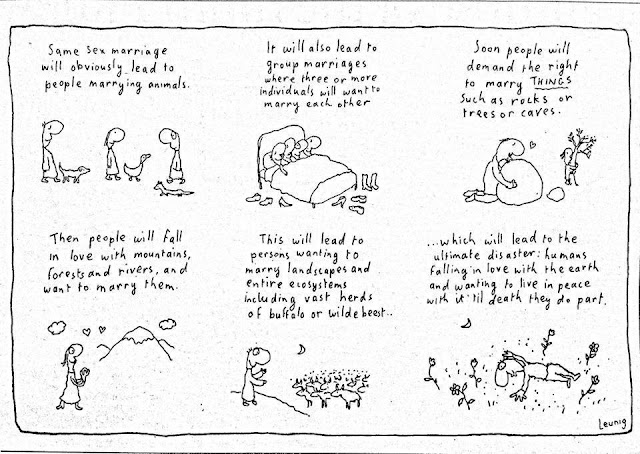 Same sex marriage
will obviously lead to
people marrying animals.
It will also lead to
group marriages
where three or more
individuals will want to
marry each other
Soon people will
demand the right
to marry THINGS
Such as rocks or
trees or caves.
Then people will fall
in love with mountains,
forests and rivers, and
want to marry them.
This will lead to
persons wanting to
marry landscapes and
entire ecosystems
including vast herds
of buffalo or wildebeest..
...which will lead to the
ultimate disaster: humans
falling in love with the earth
and wanting to live in peace
with it 'til death they do part.
Leunig